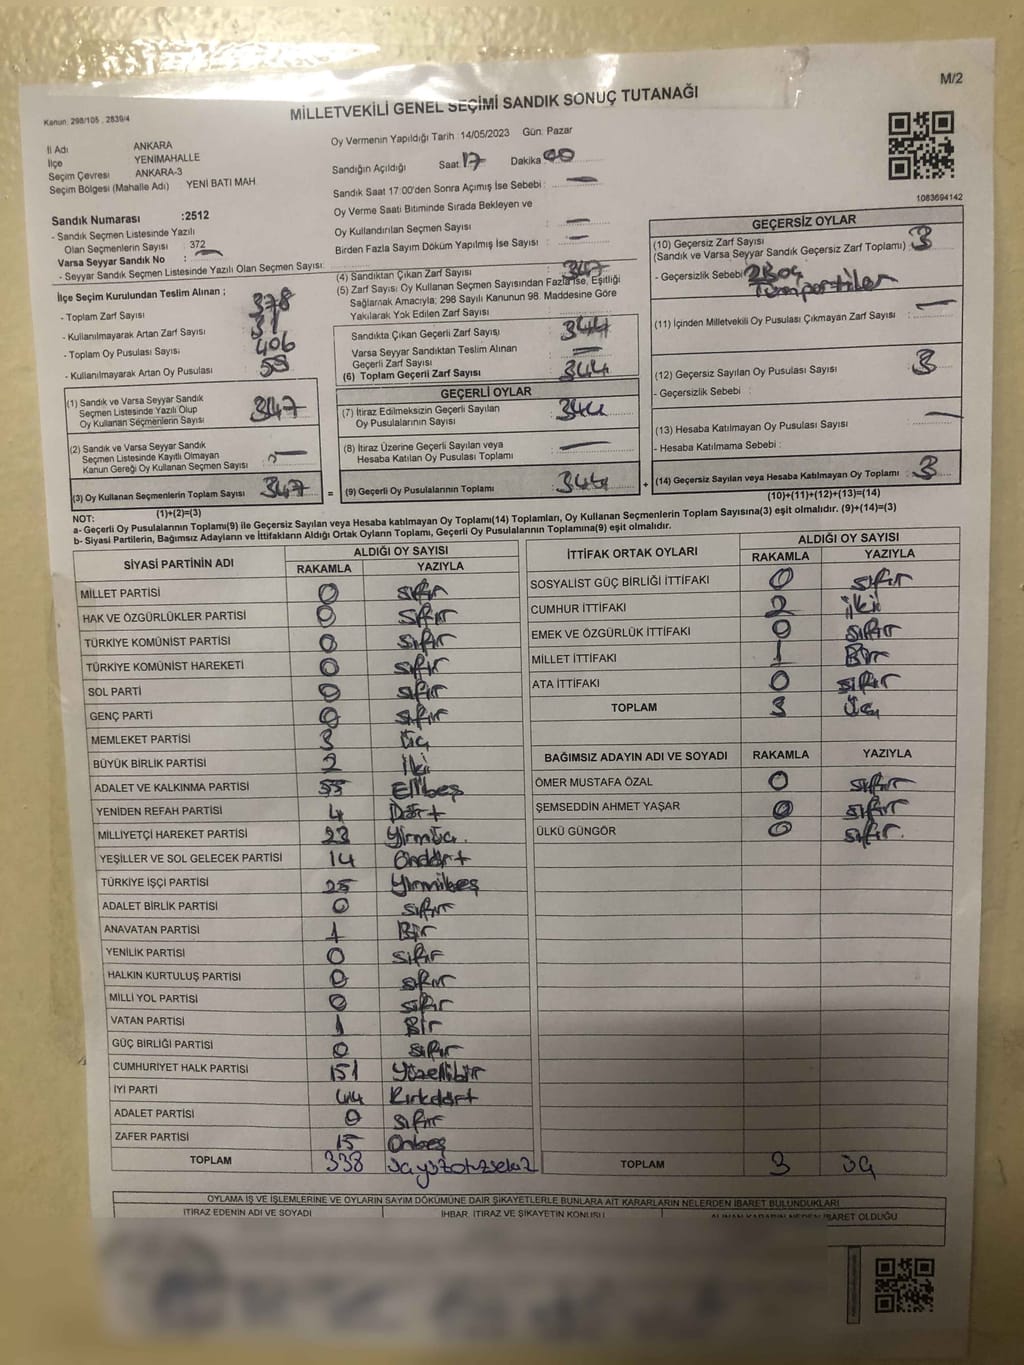 M/2
MİLLETVEKİLİ GENEL SEÇİMİ SANDIK SONUÇ TUTANAĞI
Kanun: 298/105 , 2839/4
İl Adı ANKARA
İlçe YENİMAHALLE
Seçim Çevresi ANKARA-3
Seçim Bölgesi (Mahalle Adı) YENİ BATI MAH
Sandık Numarası :2512
- Sandık Seçmen Listesinde Yazılı
Olan Seçmenlerin Sayısı : 372
Varsa Seyyar Sandık No : —
- Seyyar Sandık Seçmen Listesinde Yazılı Olan Seçmen Sayısı:
Oy Vermenin Yapıldığı Tarih :14/05/2023 Gün: Pazar
Sandığın Açıldığı Saat: 17 Dakika 00
Sandık Saat 17.00'den Sonra Açımış İse Sebebi : —
Oy Verme Saati Bitiminde Sırada Bekleyen ve
Oy Kullandırılan Seçmen Sayısı : —
Birden Fazla Sayım Döküm Yapılmış İse Sayısı : —
1083694142
İlçe Seçim Kurulundan Teslim Alınan ;
- Toplam Zarf Sayısı : 378
- Kullanılmayarak Artan Zarf Sayısı : 31
- Toplam Oy Pusulası Sayısı : 406
- Kullanılmayarak Artan Oy Pusulası : 59
(1) Sandık ve Varsa Seyyar Sandık
Seçmen Listesinde Yazılı Olup
Oy Kullanan Seçmenlerin Sayısı : 347
(2) Sandık ve Varsa Seyyar Sandık
Seçmen Listesinde Kayıtlı Olmayan
Kanun Gereği Oy Kullanan Seçmen Sayısı : —
(3) Oy Kullanan Seçmenlerin Toplam Sayısı : 347
(1)+(2)=(3)
(4) Sandıktan Çıkan Zarf Sayısı : 347
(5) Zarf Sayısı Oy Kullanan Seçmen Sayısından Fazla İse, Eşitliği
Sağlamak Amacıyla; 298 Sayılı Kanunun 98. Maddesine Göre
Yakılarak Yok Edilen Zarf Sayısı :
Sandıkta Çıkan Geçerli Zarf Sayısı : 344
Varsa Seyyar Sandıktan Teslim Alınan
Geçerli Zarf Sayısı : —
(6) Toplam Geçerli Zarf Sayısı : 344
GEÇERLİ OYLAR
(7) İtiraz Edilmeksizin Geçerli Sayılan
Oy Pusulalarının Sayısı : 344
(8) İtiraz Üzerine Geçerli Sayılan veya
Hesaba Katılan Oy Pusulası Toplamı : —
= (9) Geçerli Oy Pusulalarının Toplamı : 344 +
GEÇERSİZ OYLAR
(10) Geçersiz Zarf Sayısı
(Sandık ve Varsa Seyyar Sandık Geçersiz Zarf Toplamı) : 3
- Geçersizlik Sebebi : 2 Boş
Tüm partiler
(11) İçinden Milletvekili Oy Pusulası Çıkmayan Zarf Sayısı : —
(12) Geçersiz Sayılan Oy Pusulası Sayısı : 3
- Geçersizlik Sebebi :
(13) Hesaba Katılmayan Oy Pusulası Sayısı : —
- Hesaba Katılmama Sebebi :
(14) Geçersiz Sayılan veya Hesaba Katılmayan Oy Toplamı : 3
(10)+(11)+(12)+(13)=(14)
NOT:
a- Geçerli Oy Pusulalarının Toplamı(9) ile Geçersiz Sayılan veya Hesaba katılmayan Oy Toplamı(14) Toplamları, Oy Kullanan Seçmenlerin Toplam Sayısına(3) eşit olmalıdır. (9)+(14)=(3)
b- Siyasi Partilerin, Bağımsız Adayların ve İttifakların Aldığı Ortak Oyların Toplamı, Geçerli Oy Pusulalarının Toplamına(9) eşit olmalıdır.
SİYASİ PARTİNİN ADI ALDIĞI OY SAYISI
RAKAMLA YAZIYLA
MİLLET PARTİSİ 0 sıfır
HAK VE ÖZGÜRLÜKLER PARTİSİ 0 sıfır
TÜRKİYE KOMÜNİST PARTİSİ 0 sıfır
TÜRKİYE KOMÜNİST HAREKETİ 0 sıfır
SOL PARTİ 0 sıfır
GENÇ PARTİ 0 sıfır
MEMLEKET PARTİSİ 3 üç
BÜYÜK BİRLİK PARTİSİ 2 iki
ADALET VE KALKINMA PARTİSİ 55 Ellibeş
YENİDEN REFAH PARTİSİ 4 Dört
MİLLİYETÇİ HAREKET PARTİSİ 23 Yirmiüç.
YEŞİLLER VE SOL GELECEK PARTİSİ 14 Ondört
TÜRKİYE İŞÇİ PARTİSİ 25 Yirmibeş
ADALET BİRLİK PARTİSİ 0 sıfır
ANAVATAN PARTİSİ 1 Bir
YENİLİK PARTİSİ 0 sıfır
HALKIN KURTULUŞ PARTİSİ 0 sıfır
MİLLİ YOL PARTİSİ 0 sıfır
VATAN PARTİSİ 1 Bir
GÜÇ BİRLİĞİ PARTİSİ 0 sıfır
CUMHURİYET HALK PARTİSİ 151 Yüzellibir
İYİ PARTİ 44 Kırkdört
ADALET PARTİSİ 0 sıfır
ZAFER PARTİSİ 15 Onbeş
TOPLAM 338 üçyüzotuzsekiz
İTTİFAK ORTAK OYLARI ALDIĞI OY SAYISI
RAKAMLA YAZIYLA
SOSYALİST GÜÇ BİRLİĞİ İTTİFAKI 0 sıfır
CUMHUR İTTİFAKI 2 iki
EMEK VE ÖZGÜRLÜK İTTİFAKI 0 sıfır
MİLLET İTTİFAKI 1 Bir
ATA İTTİFAKI 0 sıfır
TOPLAM 3 Üç
BAĞIMSIZ ADAYIN ADI VE SOYADI RAKAMLA YAZIYLA
ÖMER MUSTAFA ÖZAL 0 sıfır
ŞEMSEDDİN AHMET YAŞAR 0 sıfır
ÜLKÜ GÜNGÖR 0 sıfır.
TOPLAM 3 üç
OYLAMA İŞ VE İŞLEMLERİNE VE OYLARIN SAYIM DÖKÜMÜNE DAİR ŞİKAYETLERLE BUNLARA AİT KARARLARIN NELERDEN İBARET BULUNDUKLARI
İTİRAZ EDENİN ADI VE SOYADI İHBAR, İTİRAZ VE ŞİKAYETİN KONUSU ALINAN KARARIN NEDEN İBARET OLDUĞU